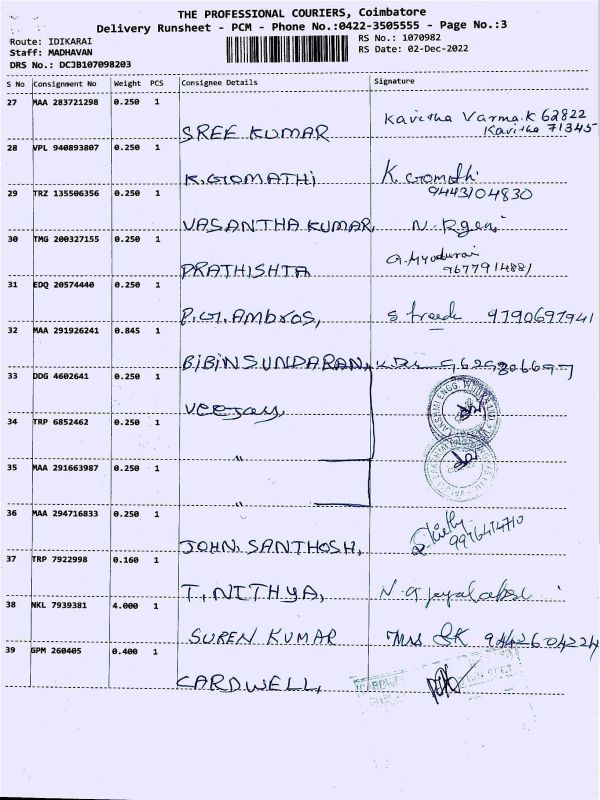 THE PROFESSIONAL COURIERS, Coimbatore
Delivery Runsheet - PCM - Phone No.:0422-3505555 - Page No.:3
Route: IDIKARAI
RS No.: 1070982
Staff: MADHAVAN
RS Date: 02-Dec-2022
DRS No.: DCJB107098203
S No Consignment No Weight PCS Consignee Details Signature
27 MAA 283721298 0.250 1 SREE KUMAR Kavitha Varma.K 62822
Kavitha 71345
28 VPL 940893807 0.250 1 K.GOMATHi K. Gomathi
9443104830
29 TRZ 135506356 0.250 1 VASANTHA KUMAR,
30 TMG 200327155 0.250 1 PRATHISHTA
9677914881
31 EDQ 20574440 0.250 1 P.G.AMbROS, 9790697941
32 MAA 291926241 0.845 1 BiBiN SUNDARAN,
33 DDG 4602641 0.250 1 Veejay,
34 TRP 6852462 0.250 1 "
35 MAA 291663987 0.250 1 "
36 MAA 294716833 0.250 1 JOHN. SANTHOSH,
37 TRP 7922998 0.160 1 T. NITHYA,
38 NKL 7939381 4.000 1 SUREN KUMAR Mrs SK 9442604224
39 GPM 260405 0.400 1 CARDWELL,